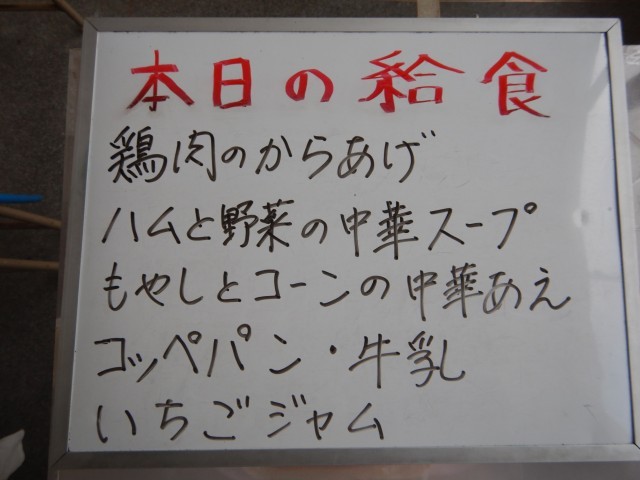 本日の給食
鶏肉のからあげ
ハムと野菜の中華スープ
もやしとコーンの中華あえ
コッペパン・牛乳
いちごジャム